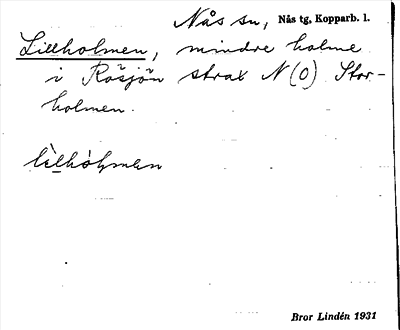 Nås sn, Nås tg, Kopparb. l.
Lillholmen, mindre holme
i Råsjön strax N (O) Stor-
holmen.
Bror Lindén 1931